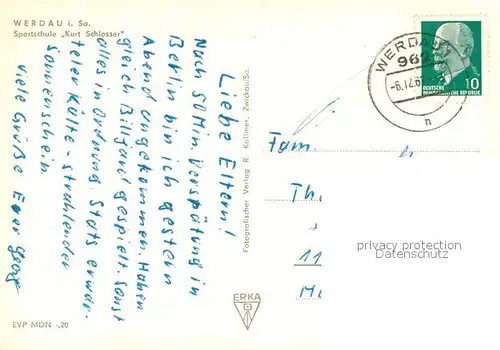 WERDAU i. Sa.
Sportschule „Kurt Schlosser"
Liebe Eltern!
Nach 50 Min. Verspätung in
Berlin bin ich gestern
Abend angekommen. Haben
gleich Billard gespielt. Sonst
alles in Ordnung. Statt erwar-
teter Kälte - strahlender
Sonnenschein
viele Grüße Euer Georg
EVP MDN -,20
Fotografischer Verlag R. Kallmer, Zwickau/Sa.
ERKA
WERDAU
962
-6.12.6
n
10
DEUTSCHE
DEMOKRATISCHE REPUBLIK
Fam.
Th.
11
privacy protection
VERIPICS